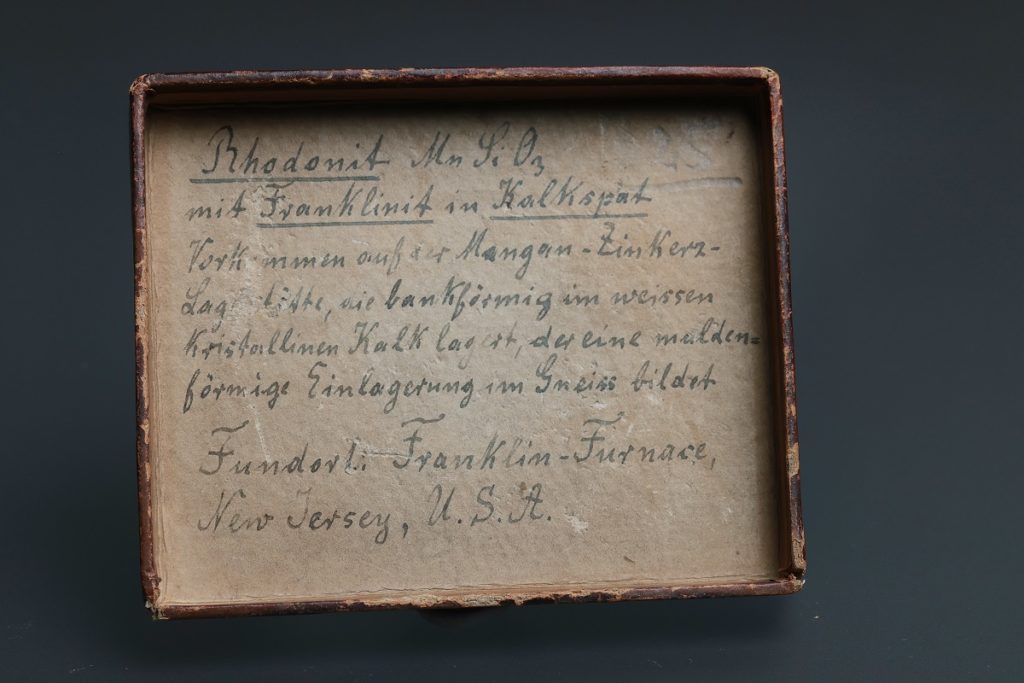 Rhodonit Mn Si O₃
mit Franklinit in Kalkspat
Vorkommen auf der Mangan-Zinkerz-
Lagerstätte, die bankförmig im weissen
kristallinen Kalk lagert, der eine mulden=
förmige Einlagerung im Gneiss bildet
Fundort: Franklin-Furnace,
New Jersey, U.S.A.